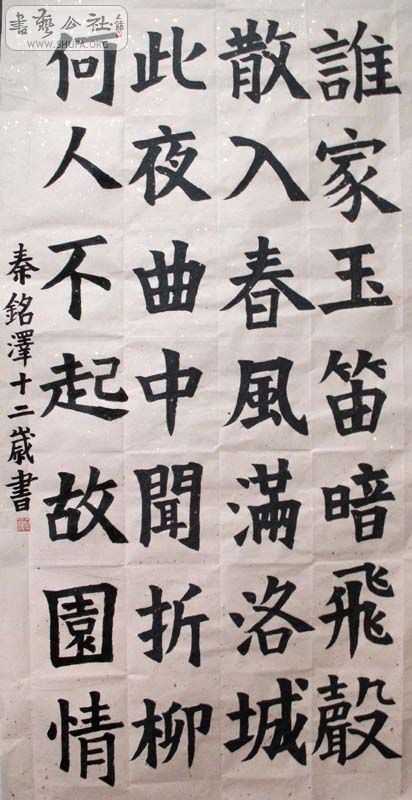 誰家玉笛暗飛聲
散入春風滿洛城
此夜曲中聞折柳
何人不起故園情
秦銘澤十二歲書
書藝公社
WWW.SHUFA.ORG